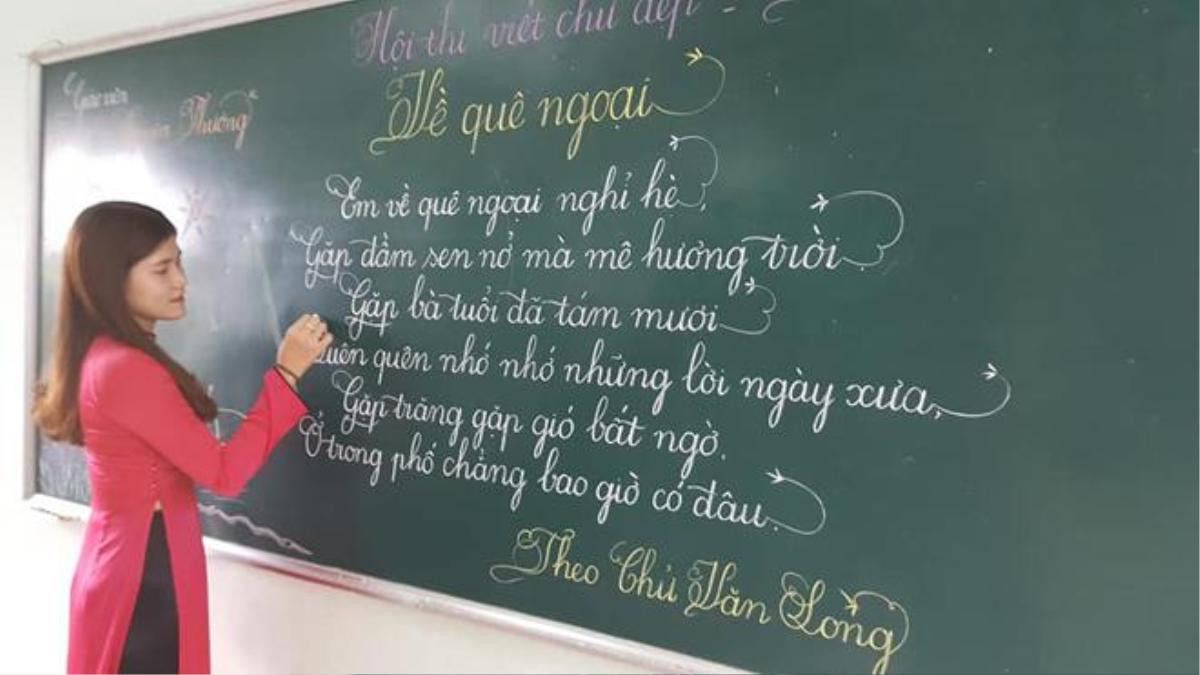 Hội thi viết chữ đẹp -
Giáo viên
Thương
Về quê ngoại
Em về quê ngoại nghỉ hè,
Gặp đầm sen nở mà mê hương trời.
Gặp bà tuổi đã tám mươi
quên nhớ nhớ những lời ngày xưa.
Gặp trăng gặp gió bất ngờ.
Ở trong phố chẳng bao giờ có đâu.
Theo Chử Văn Long